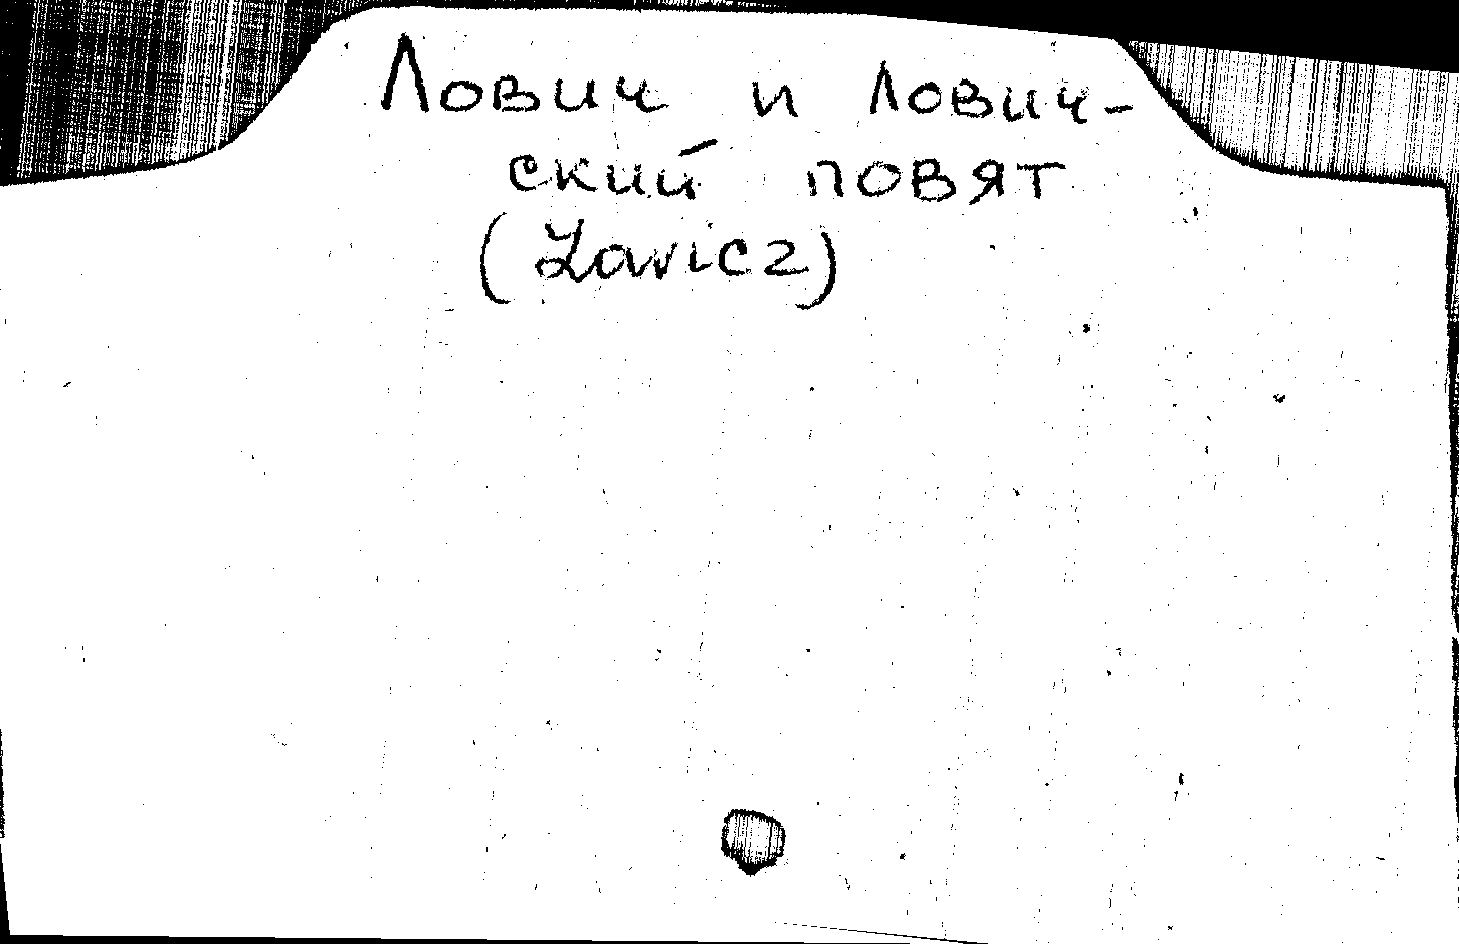 Лович и Лович-
ский повят
(Łowicz)